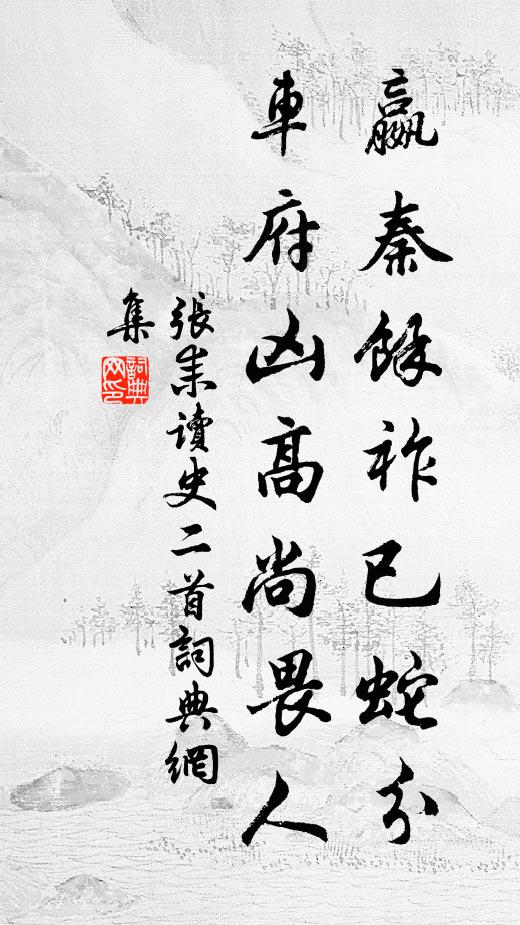 嬴秦餘祚已蛇分
車府凶高尚畏人
張耒讀史二首詞典網
集
詞典網印